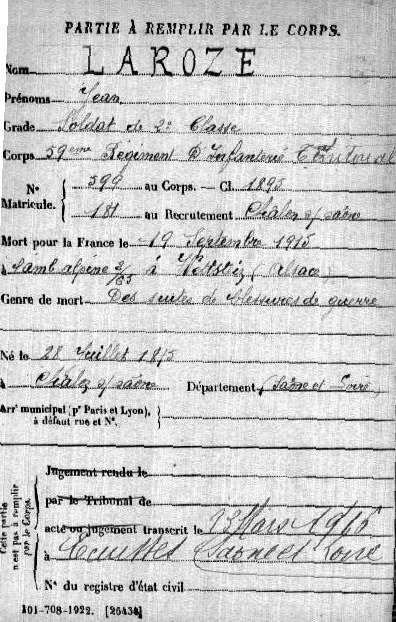 PARTIE À REMPLIR PAR LE CORPS.
Nom LAROZE
Prénoms Jean
Grade Soldat de 2e Classe
Corps 59eme Régiment d'Infanterie Territorial
N° Matricule. 599 au Corps. — Cl. 1895
181 au Recrutement Châlon s/saône
Mort pour la France le 19 Septembre 1915
à l'amb alpine 2/65 à (Alsace)
Genre de mort Des suites de blessures de guerre
Né le 28 Juillet 1875
à Châlon s/saône Département (Saône et Loire)
Arrt municipal (pr Paris et Lyon),
à défaut rue et N°.
Cette partie n'est pas à remplir par le Corps.
Jugement rendu le
par le Tribunal de
acte ou jugement transcrit le 23 Mars 1916
à Ecuisses Saône et Loire
N° du registre d'état civil
101-708-1922. [26434]